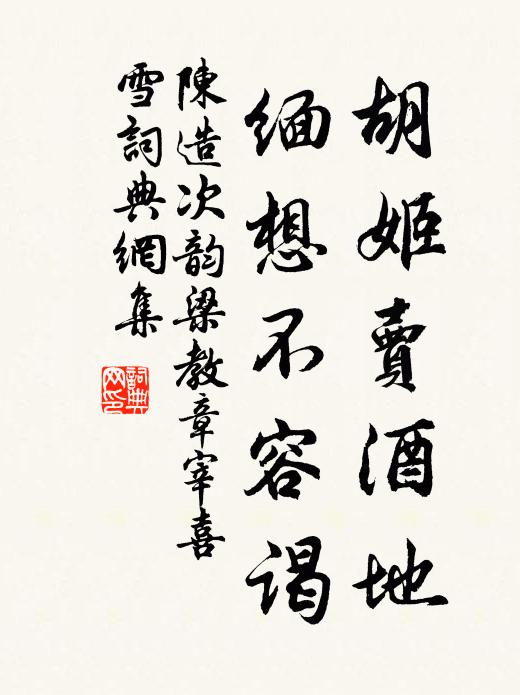 胡姬賣酒地
緬想不容谒
陳造次韵梁教章宰喜
雪詞典網集
詞典
网印